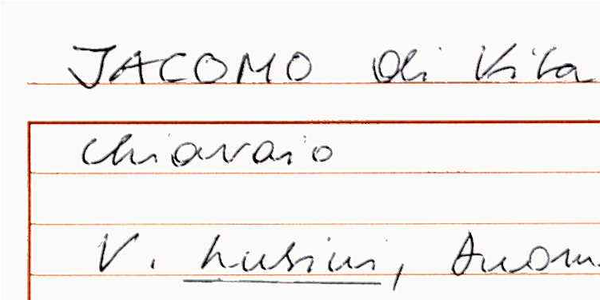 JACOMO di Vita
chiavaio
V. Lusini,